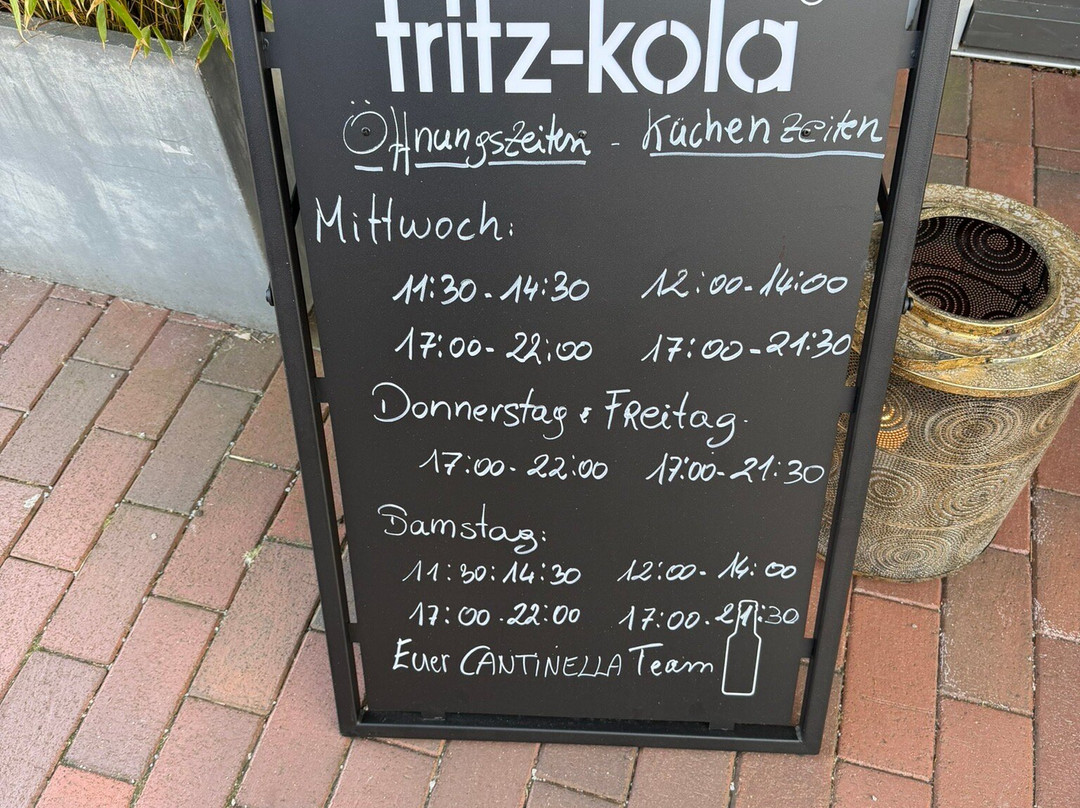 fritz-kola
Öffnungszeiten - Küchenzeiten
Mittwoch:
11:30 - 14:30 12:00 - 14:00
17:00 - 22:00 17:00 - 21:30
Donnerstag & Freitag.
17:00 - 22:00 17:00 - 21:30
Samstag:
11:30:14:30 12:00 - 14:00
17:00 - 22:00 17:00 - 21:30
Euer CANTINELLA Team